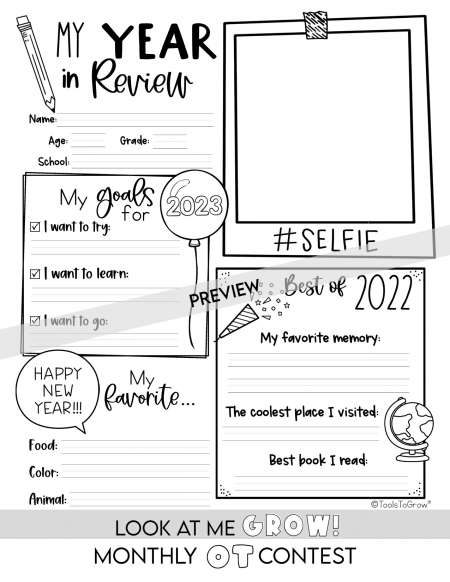 MY YEAR
in Review
Name:
Age: Grade:
School:
#SELFIE
My goals
for 2023
I want to try:
I want to learn:
I want to go:
PREVIEW
Best of 2022
My favorite memory:
The coolest place I visited:
Best book I read:
HAPPY
NEW
YEAR!!!
My
favorite...
Food:
Color:
Animal:
©ToolsToGrow®
LOOK AT ME GROW!
MONTHLY OT CONTEST